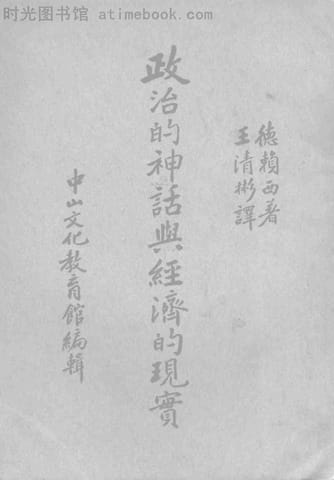 时光图书馆 atimebook.com
德賴西著
王清彬譯
政治的神話與經濟的現實
中山文化教育館編輯